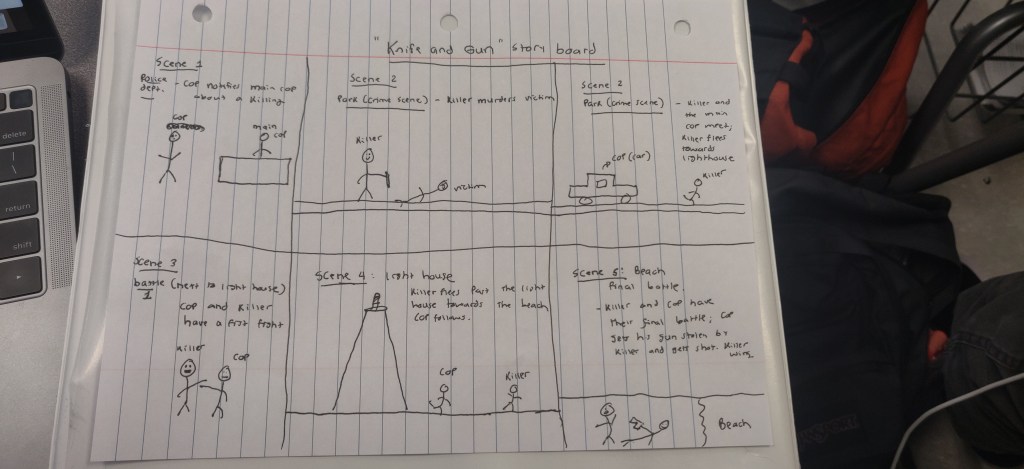 "Knife and Gun" story board
Scene 1
Police dept. - Cop notifies main cop
about a killing.
Cop
main
cop
Scene 2
Park (crime scene) - Killer murders victim
Killer
victim
Scene 2
Park (crime scene) - Killer and
the main
cop meet;
Killer flees
towards
lighthouse
cop (car)
Killer
Scene 3
battle (next to light house)
1
Cop and Killer
have a first fight
Killer
Cop
Scene 4: Light house
Killer flees past the light
house towards the beach
Cop follows.
Cop
Killer
Scene 5: Beach
Final battle.
- Killer and Cop have
their final battle; Cop
gets his gun stolen by
Killer and gets shot. Killer
wins.
Beach
delete
return
shift